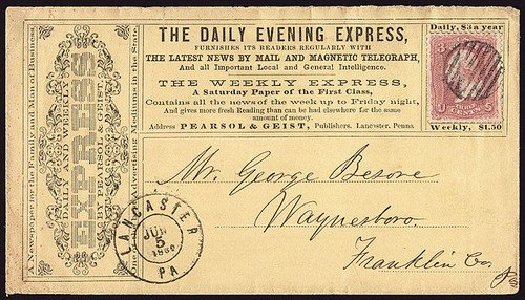 THE DAILY EVENING EXPRESS,
FURNISHES ITS READERS REGULARLY WITH
THE LATEST NEWS BY MAIL AND MAGNETIC TELEGRAPH,
And all Important Local and General Intelligence.
THE WEEKLY EXPRESS,
A Saturday Paper of the First Class,
Contains all the news of the week up to Friday night,
And gives more fresh Reading than can be had elsewhere for the same
amount of money.
Address PEARSOL & GEIST, Publishers, Lancaster, Penna.
Daily, $3 a year
Weekly, $1.50
A Newspaper for the Family and Man of Business.
DAILY AND WEEKLY
EXPRESS
BY PEARSOL & GEIST.
Advertising Mediums in the State.
Mr. George Besore
Waynesboro
Franklin Co.
LANCASTER
JUN
5
PA